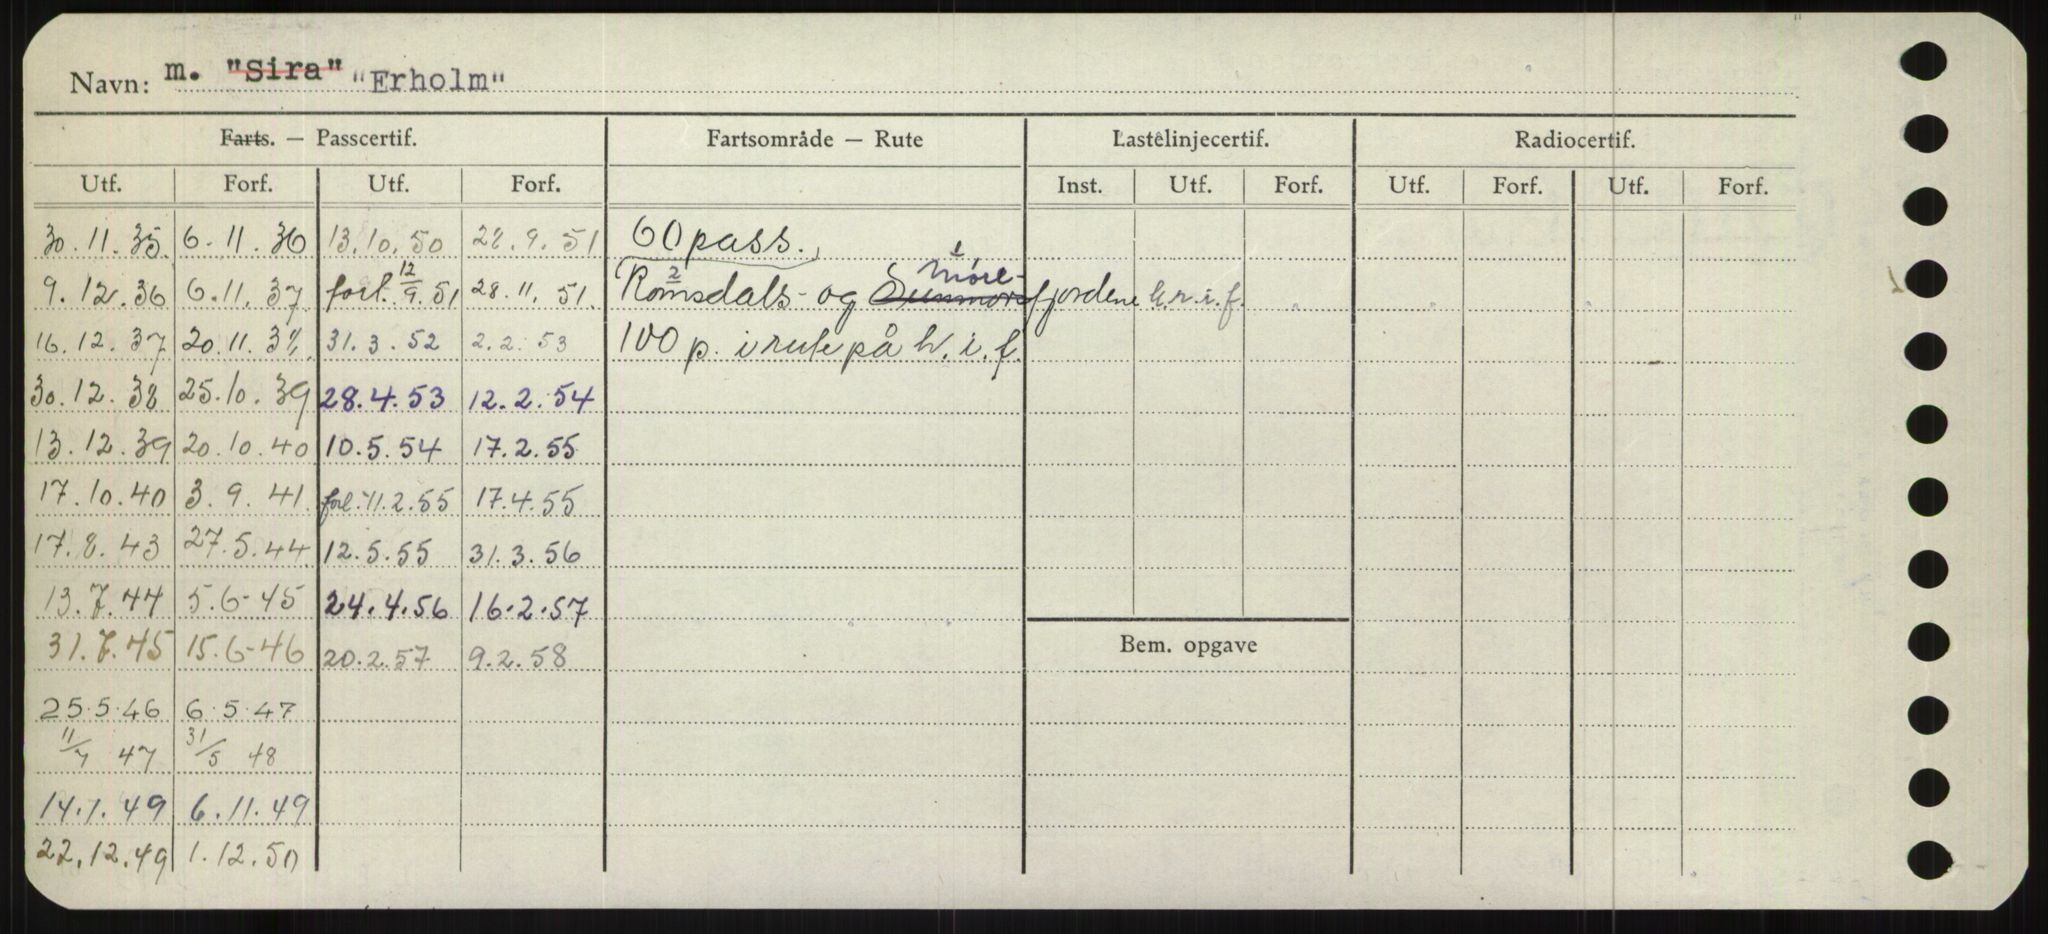 Navn: m. "Sira" "Erholm"
Farts. — Passcertif. Fartsområde — Rute Lastelinjecertif. Radiocertif.
Utf. Forf. Utf. Forf. Inst. Utf. Forf. Utf. Forf. Utf. Forf.
30.11.35. 6.11.36 13.10.50 28.9.51 60 pass.
1 Møre-
9.12.36 6.11.37 forl. 12/9.51 28.11.51. 2 Romsdals- og Sunnmørsfjordene h.r.i.f.
16.12.37 20.11.38. 31.3.52 2.2.53 100 p. i rute på h.i.f.
30.12.38 25.10.39 28.4.53 12.2.54
13.12.39 20.10.40 10.5.54 17.2.55
17.10.40 3.9.41. forl. 11.2.55 17.4.55
17.8.43 27.5.44. 12.5.55 31.3.56
13.7.44 5.6-45 24.4.56 16.2.57
31.7.45 15.6-46 20.2.57 9.2.58 Bem. opgave
25.5.46 6.5.47
11/7 47 31/5 48
14.1.49 6.11.49
22.12.49 1.12.50